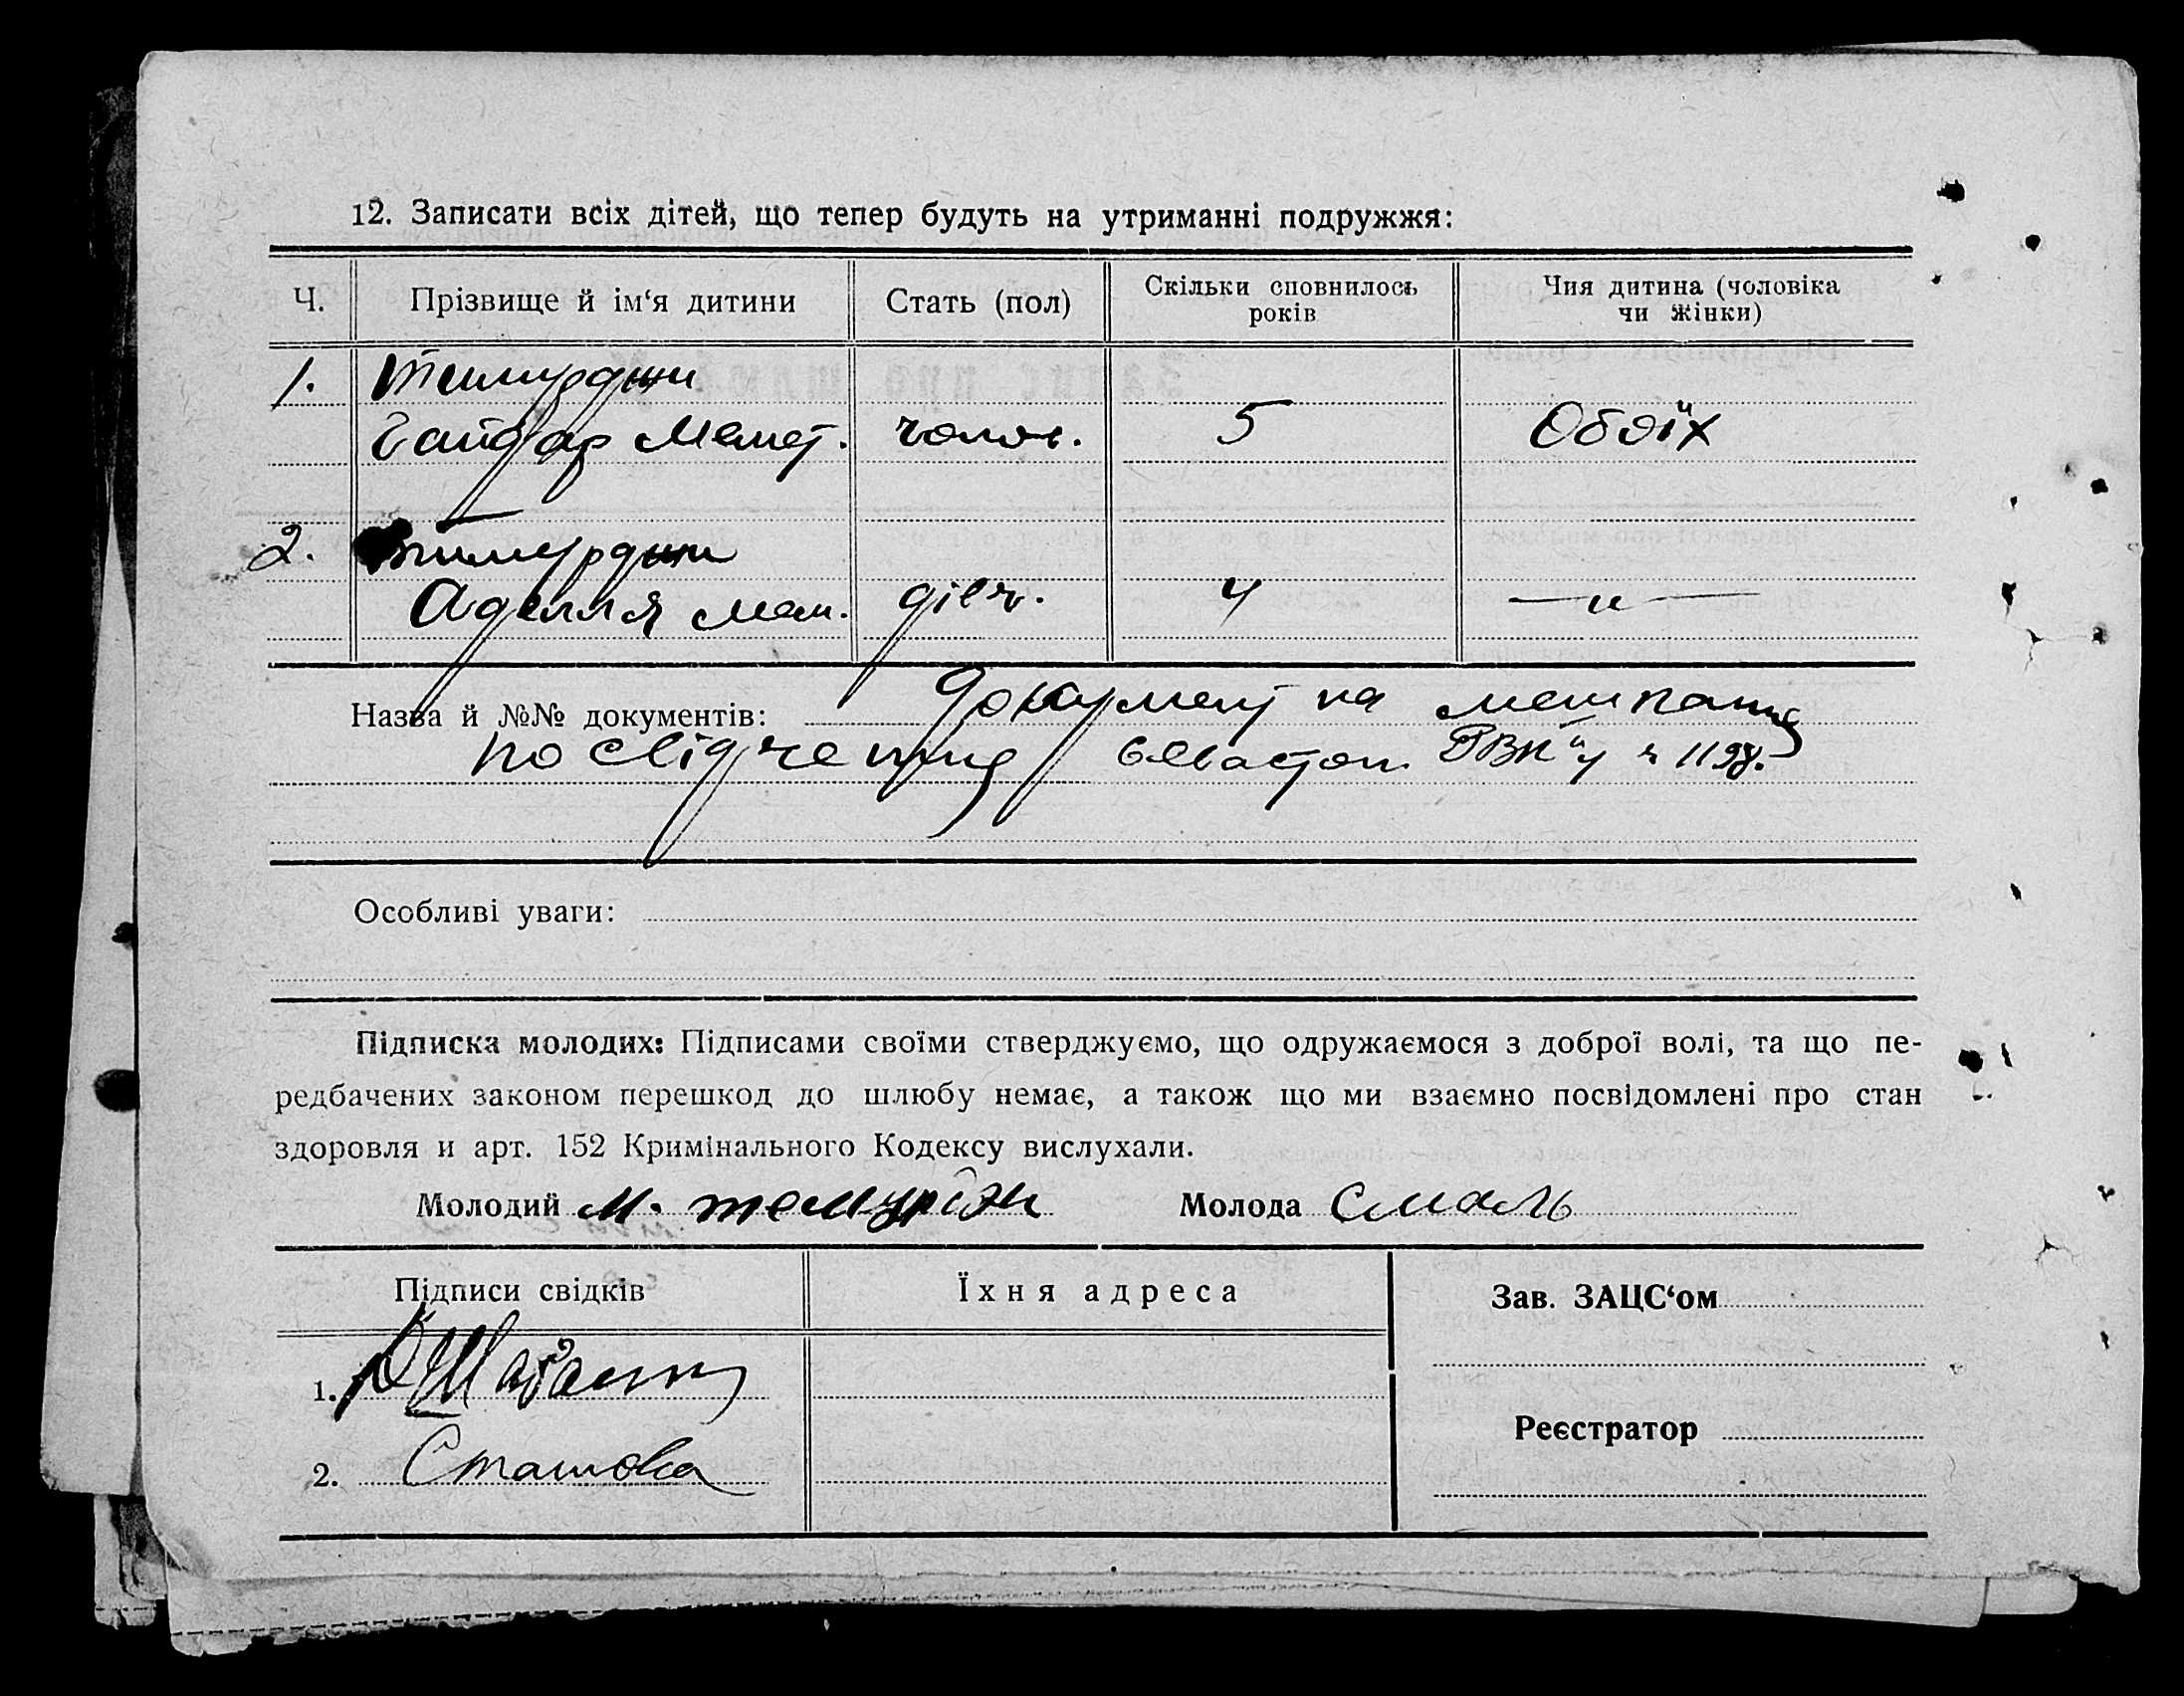 12. Записати всіх дітей, що тепер будуть на утриманні подружжя:
Ч. Прізвище й ім‘я дитини Стать (пол) Скільки сповнилось років Чия дитина (чоловіка чи жінки)
1. Темурджи
Гайдар Мемет. чолов. 5 Обоїх
2. Темурджи
Аделля Мем. дівч. 4 — " —
Назва й №№ документів: Документ на мешкання
посвідчення Севастоп. РВК"у ч 1198.
Особливі уваги:
Підписка молодих: Підписами своїми стверджуємо, що одружаємося з доброї волі, та що пе-
редбачених законом перешкод до шлюбу немає, а також що ми взаємно посвідомлені про стан
здоровля и арт. 152 Кримінального Кодексу вислухали.
Молодий М. Молода Смаль
Підписи свідків Їхня адреса Зав. ЗАЦС‘ом
1.
Реєстратор
2. Сташова